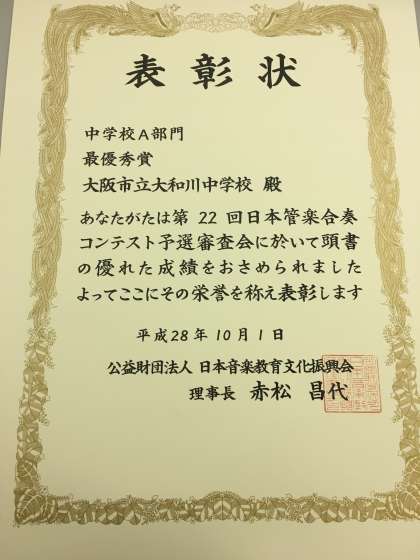 表彰状
中学校A部門
最優秀賞
大阪市立大和川中学校 殿
あなたがたは第22回日本管楽合奏
コンテスト予選審査会に於いて頭書
の優れた成績をおさめられました
よってここにその栄誉を称え表彰します
平成28年10月1日
公益財団法人 日本音楽教育文化振興会
理事長 赤松 昌代